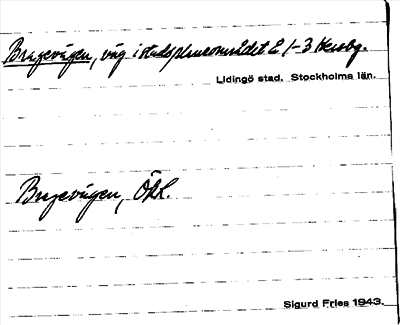 Bragevägen, väg i stadsplaneområdet E 1-3 Hersby.
Lidingö stad. Stockholms län.
Bragevägen, ÖKL.
Sigurd Fries 1943.